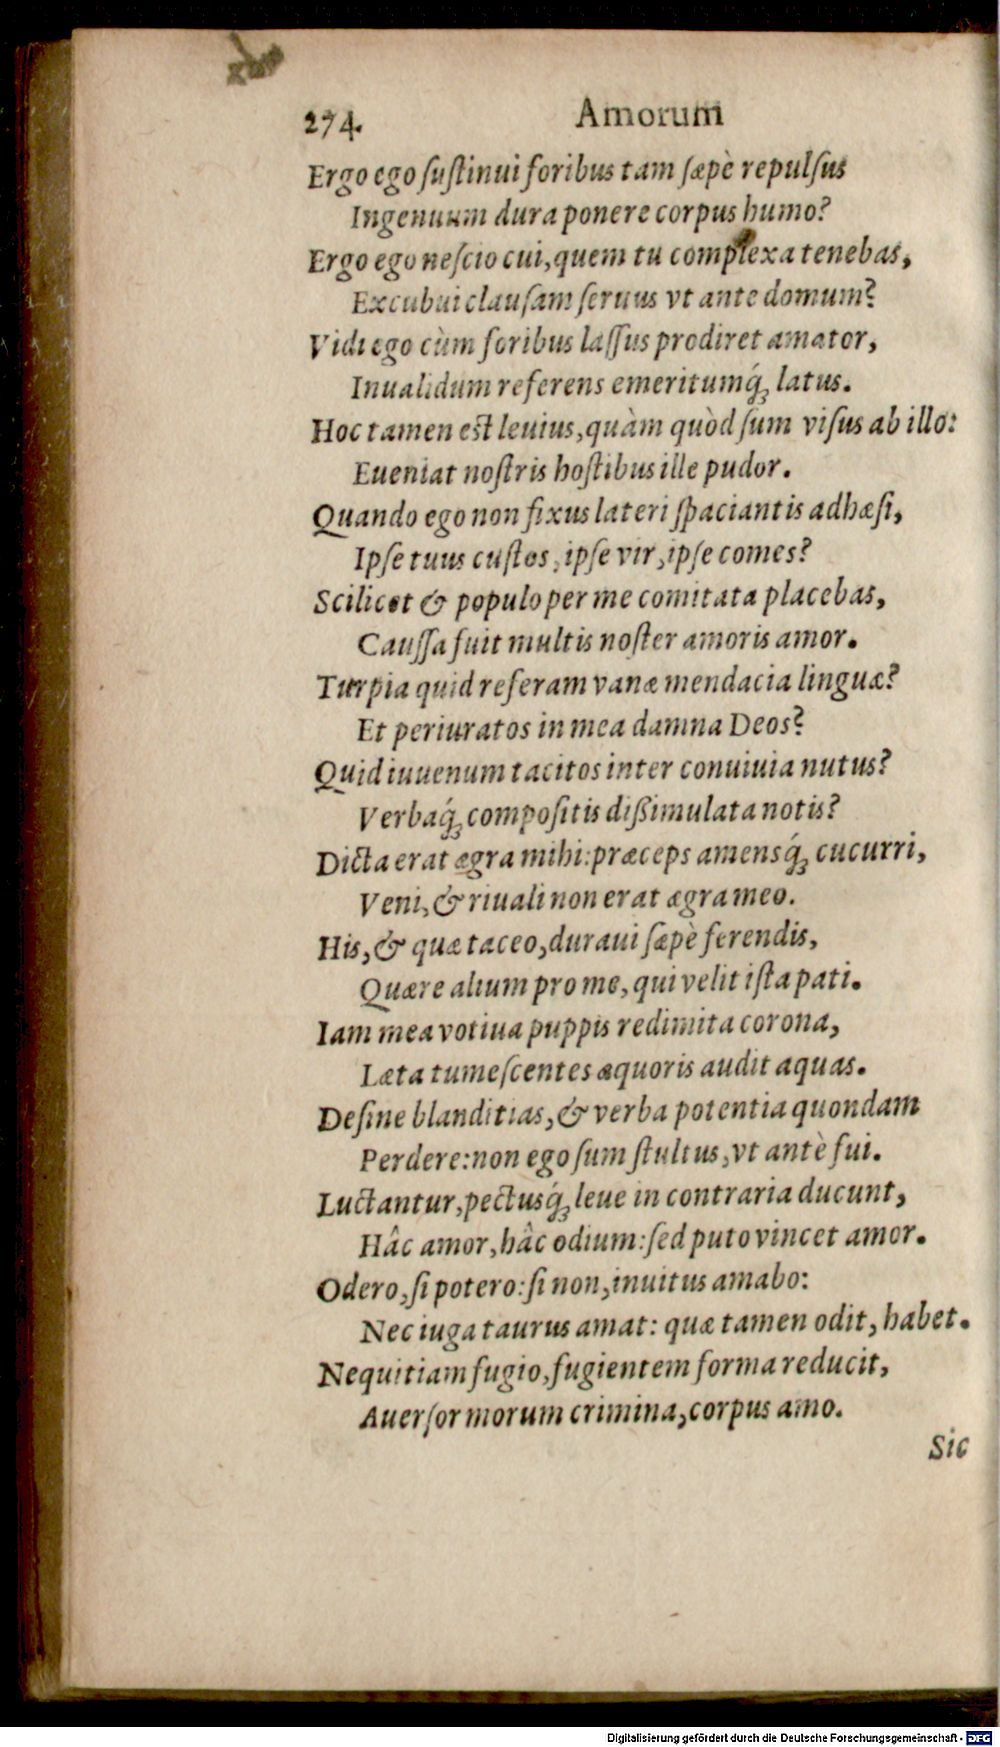 274.
Amorum
Ergo ego ſuſtinui foribus tam ſæpè repulſus
Ingenuum dura ponere corpus humo?
Ergo ego neſcio cui, quem tu complexa tenebas,
Excubui clauſam ſeruus vt ante domum?
Vidi ego cùm foribus laſſus prodiret amator,
Inualidum referens emeritumq́ʒ latus.
Hoc tamen eſt leuius, quàm quòd ſum viſus ab illo:
Eueniat noſtris hoſtibus ille pudor.
Quando ego non fixus lateri ſpaciantis adhæſi,
Ipſe tuus cuſtos, ipſe vir, ipſe comes?
Scilicet & populo per me comitata placebas,
Cauſſa fuit multis noſter amoris amor.
Turpia quid referam vanæ mendacia linguæ?
Et periuratos in mea damna Deos?
Quid iuuenum tacitos inter conuiuia nutus?
Verbaq́ʒ compoſitis diſſimulata notis?
Dicta erat ægra mihi: præceps amensq́ʒ cucurri,
Veni, & riuali non erat ægra meo.
His, & quæ taceo, duraui ſæpè ferendis,
Quære alium pro me, qui velit iſta pati.
Iam mea votiua puppis redimita corona,
Læta tumeſcentes æquoris audit aquas.
Deſine blanditias, & verba potentia quondam
Perdere: non ego ſum ſtultus, vt antè fui.
Luctantur, pectusq́ʒ leue in contraria ducunt,
Hâc amor, hâc odium: ſed puto vincet amor.
Odero, ſi potero: ſi non, inuitus amabo:
Nec iuga taurus amat: quæ tamen odit, habet.
Nequitiam fugio, fugientem forma reducit,
Auerſor morum crimina, corpus amo.
Sic
Digitalisierung gefördert durch die Deutsche Forschungsgemeinschaft - DFG